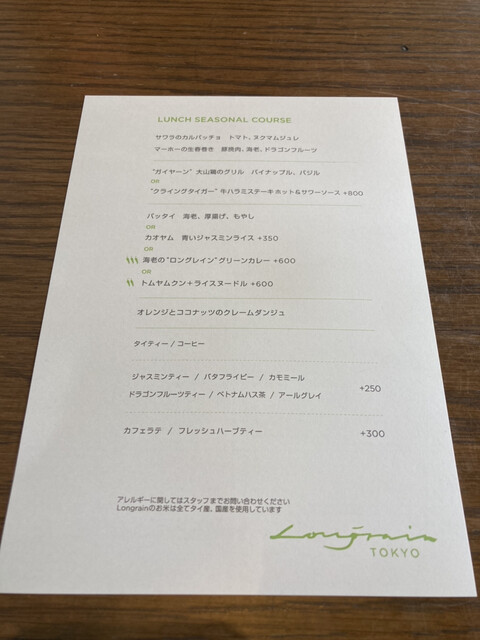 LUNCH SEASONAL COURSE
サワラのカルパッチョ トマト、ヌクマムジュレ
マーホーの生春巻き 豚挽肉、海老、ドラゴンフルーツ
"ガイヤーン" 大山鶏のグリル パイナップル、バジル
OR
"クライングタイガー" 牛ハラミステーキ ホット&サワーソース +800
パッタイ 海老、厚揚げ、もやし
OR
カオヤム 青いジャスミンライス +350
OR
海老の"ロングレイン"グリーンカレー +600
OR
トムヤムクン+ライスヌードル +600
オレンジとココナッツのクレームダンジュ
タイティー / コーヒー
ジャスミンティー / バタフライピー / カモミール
ドラゴンフルーツティー / ベトナムハス茶 / アールグレイ
+250
カフェラテ / フレッシュハーブティー +300
アレルギーに関してはスタッフまでお問い合わせください
Longrainのお米は全てタイ産、国産を使用しています
Longrain
TOKYO